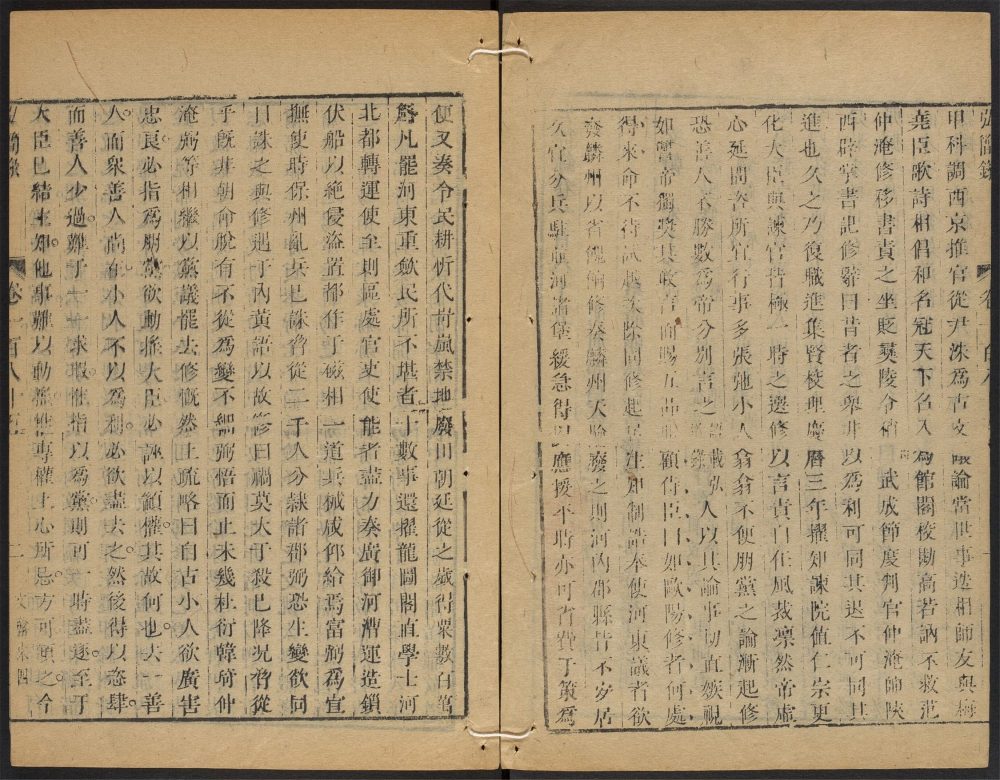 弘簡錄 卷一百八 一
甲科調西京推官從尹洙爲古文議論當世事迭相師友與梅
堯臣歌詩相倡和名冠天下名入爲館閣校勘高若訥不救范
仲淹修移書責之坐貶夷陵令稍 武成節度判官仲淹帥陝
西辟掌書記修辭曰昔者之舉非以爲利可同其退不可同其
進也久之乃復職進集賢校理慶曆三年擢知諫院值仁宗更
化大臣與諫官皆極一時之選修以言責自任風裁凛然帝虛
心延問咨所宜行事多張弛小人翕翕不便朋黨之論漸起修
恐善人不勝數爲帝分別言之 人以其論事切直嫉視
如讐帝獨奬其敢言面賜五品服顧侍臣曰如歐陽修者何處
得來命不待試越次除同修起居注知制誥奉使河東議者欲
廢麟州以省餽餉修奏麟州天險廢之則河內郡縣皆不安居
久宜分兵駐並河諸堡緩急得以應援平時亦可省費于策爲
便又奏令民耕忻代岢嵐禁地廢田朝廷從之歲得粟數百萬
斛凡罷河東重歛民所不堪者十數事還擢龍圖閣直學士河
北都轉運使至則區處官吏使能者盡力奏廣御河漕運造鎖
伏船以絶侵盗置都作于磁相一道兵械咸仰給焉富弼爲宣
撫使時保州亂兵已誅脅從二千人分隸諸郡弼恐生變欲同
日誅之與修遇于內黃語以故修曰禍莫大于殺已降况脅從
乎旣非朝命脫有不從爲變不細弼悟而止未幾杜衍韓琦仲
淹弼等相繼以黨議罷去修慨然上疏略曰自古小人欲廣害
忠良必指爲朋黨欲動搖大臣必誣以顓權其故何也去一善
人而衆善人尚在小人不以爲利必欲盡去之然後得以恣肆
而善人少過難于一一求瑕惟指以爲黨則可一時盡逐至于
大臣已結主知他事難以動搖惟專權上心所忌方可傾之今
弘簡錄 卷一百八十五 二 文 四